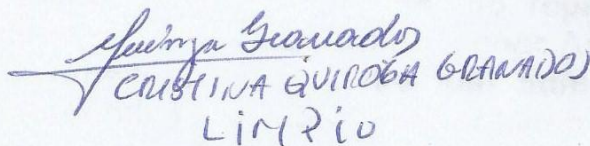 Quiroga Granados
CRISTINA QUIROGA GRANADOS
LiMPiO